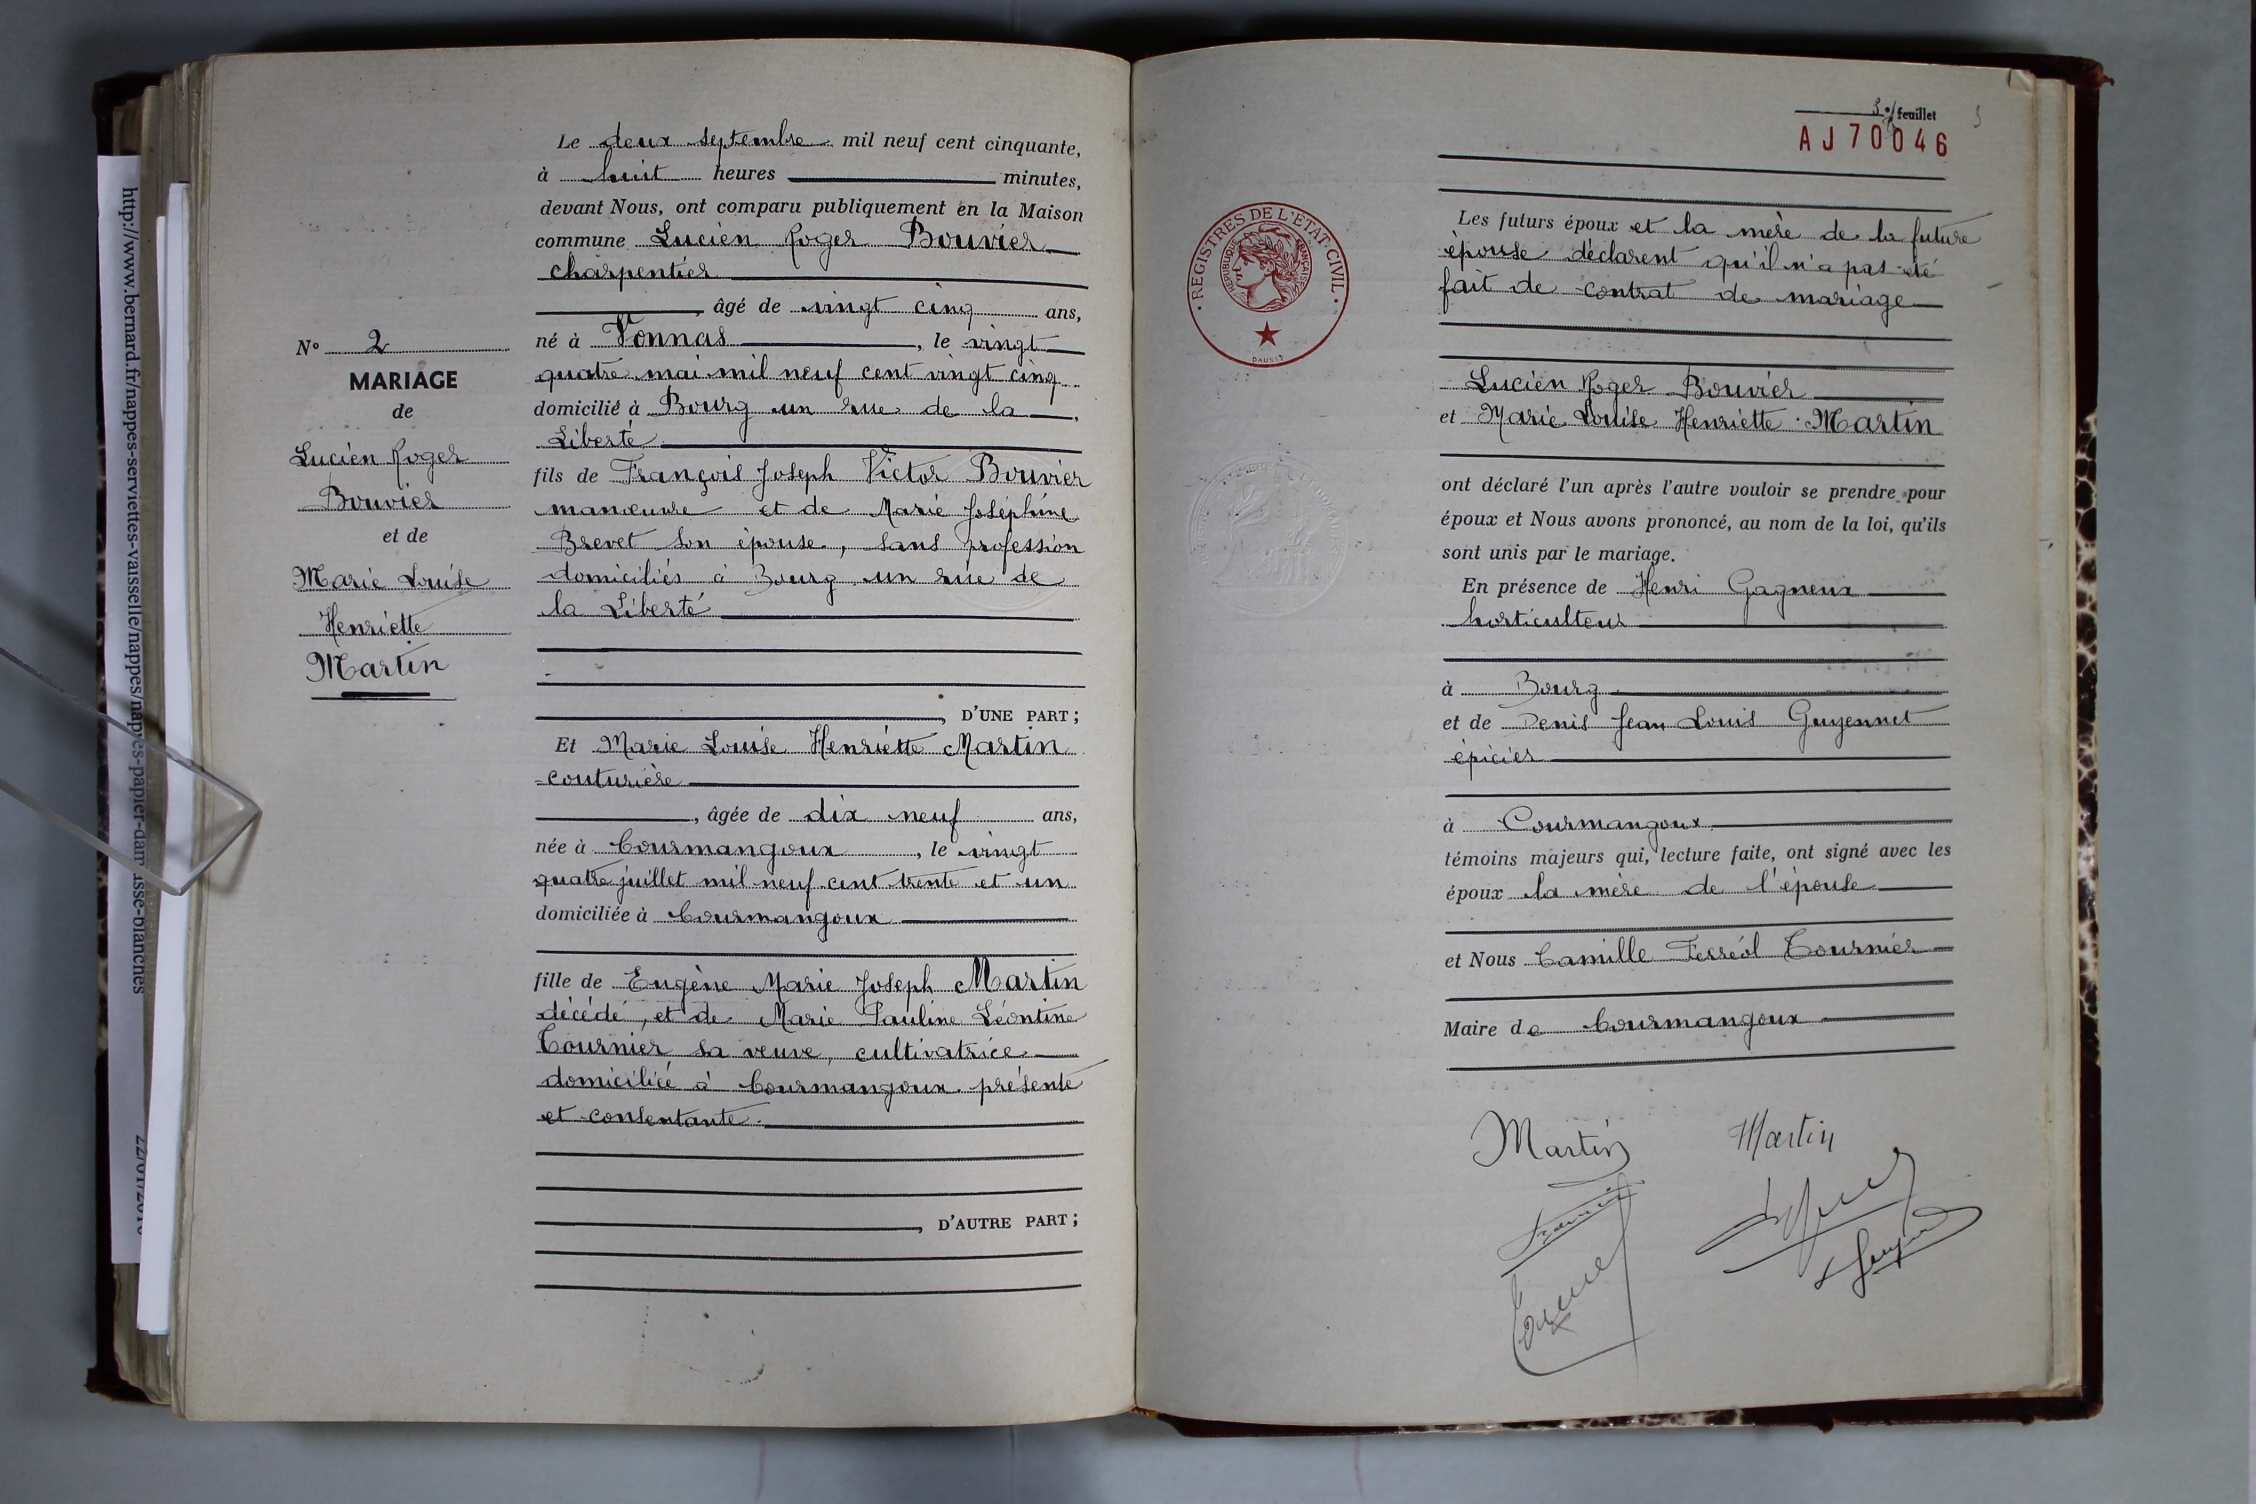 http://www.bernard.fr/nappes-serviettes-vaisselle/nappes/nappes-papier-dam
isse-blanches
N° 2
MARIAGE
de
Lucien Roger
Bouvier
et de
Marie Louise
Henriette
Martin
Le deux septembre mil neuf cent cinquante,
à huit heures minutes,
devant Nous, ont comparu publiquement en la Maison
commune Lucien Roger Bouvier
charpentier
, âgé de vingt cinq ans,
né à Vonnas , le vingt
quatre mai mil neuf cent vingt cinq
domicilié à Bourg un rue de la
Liberté
fils de François Joseph Victor Bouvier
manœuvre et de Marie Joséphine
Brevet son épouse, sans profession
domiciliés à Bourg un rue de
la Liberté
, D'UNE PART ;
Et Marie Louise Henriette Martin
couturière
, âgée de dix neuf ans,
née à Courmangoux , le vingt
quatre juillet mil neuf cent trente et un
domiciliée à Courmangoux
fille de Eugène Marie Joseph Martin
décédé, et de Marie Pauline Léontine
Tournier sa veuve, cultivatrice
domiciliée à Courmangoux présente
et consentante.
, D'AUTRE PART ;
3e feuillet 3
AJ70046
REGISTRES DE L'ETAT-CIVIL
REPUBLIQUE FRANÇAISE
DAUSSY
Les futurs époux et la mère de la future
épouse déclarent qu'il n'a pas été
fait de contrat de mariage
Lucien Roger Bouvier
et Marie Louise Henriette Martin
ont déclaré l'un après l'autre vouloir se prendre pour
époux et Nous avons prononcé, au nom de la loi, qu'ils
sont unis par le mariage.
En présence de Henri Gagneux
horticulteur
à Bourg
et de Denis Jean Louis Guyennet
épicier
à Courmangoux
témoins majeurs qui, lecture faite, ont signé avec les
époux la mère de l'épouse
et Nous Camille Ferréol Tournier
Maire de Courmangoux
Martin Martin